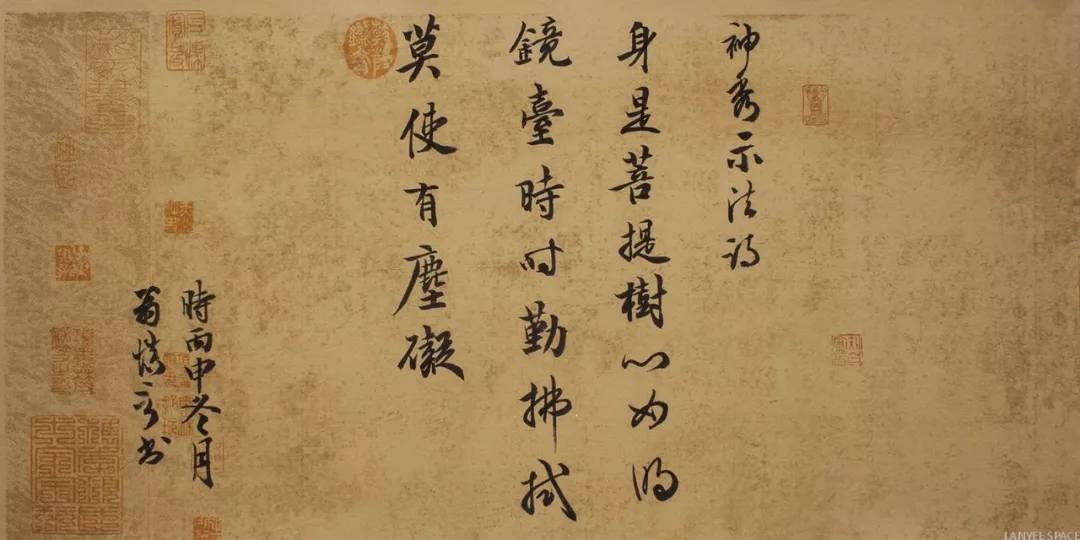 神秀示法诗
身是菩提樹心如明
鏡臺時时勤拂拭
莫使有塵礙
時丙申冬月
翁书
LANYEE SPACE